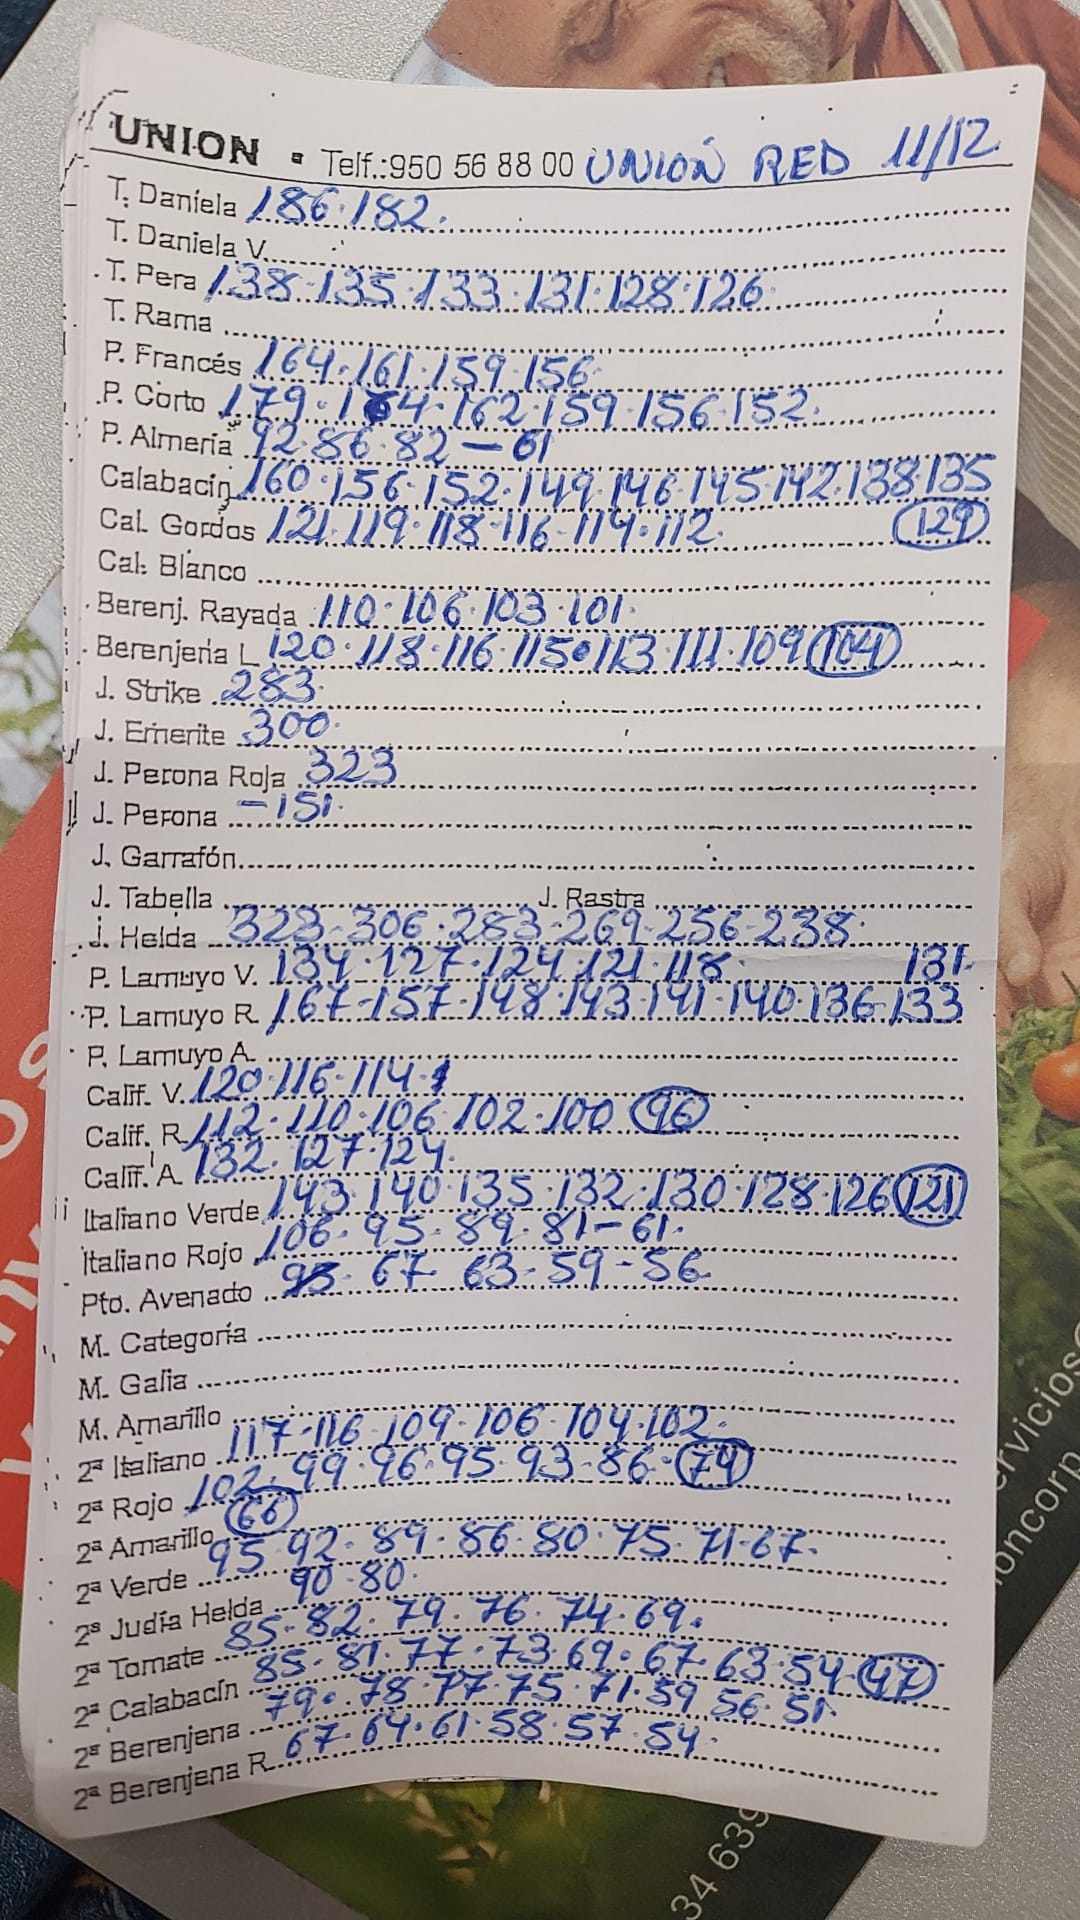 UNION · Telf.:950 56 88 00 UNIÓN RED 11/12
T. Daniela 186·182·
T. Daniela V.
T. Pera 138·135·133·131·128·126
T. Rama
P. Francés 164·161·159·156·
P. Corto 179·164·162·159·156·152·
P. Almería 92·86·82-61
Calabacín 160·156·152·149·146·145·142·138·135
Cal. Gordos 121·119·118·116·114·112· 129
Cal. Blanco
Berenj. Rayada 110·106·103·101·
Berenjena L 120·118·116·115·113·111·109 104
J. Strike 283·
J. Emerite 300·
J. Perona Roja 323
J. Perona -151·
J. Garrafón
J. Tabella J. Rastra
J. Helda 323-306·283-269-256-238·
P. Lamuyo V. 134·127·124·121·118· 131·
P. Lamuyo R. 167-157-148·143·141·140·136-133
P. Lamuyo A.
Calif. V. 120·116·114·
Calif. R. 112·110·106·102·100 96
Calif. A. 132·127·124·
Italiano Verde 143·140·135·132·130·128·126 121
Italiano Rojo 106·95·89·81-61·
Pto. Avenado 67· 63·59-56
M. Categoría
M. Galia
M. Amarillo
2ª Italiano 117·116·109·106·104·102·
2ª Rojo 102·99·96·95·93·86· 74
2ª Amarillo 66
2ª Verde 95·92·89·86·80·75·71·67·
2ª Judía Helda 90·80·
2ª Tomate 85·82·79·76·74·69·
2ª Calabacín 85·81·77·73·69·67·63·54 47
2ª Berenjena 79·78·77·75·71·59·56·51·
2ª Berenjena R. 67·64·61·58·57·54·
ervicios@
ioncorp
34 639